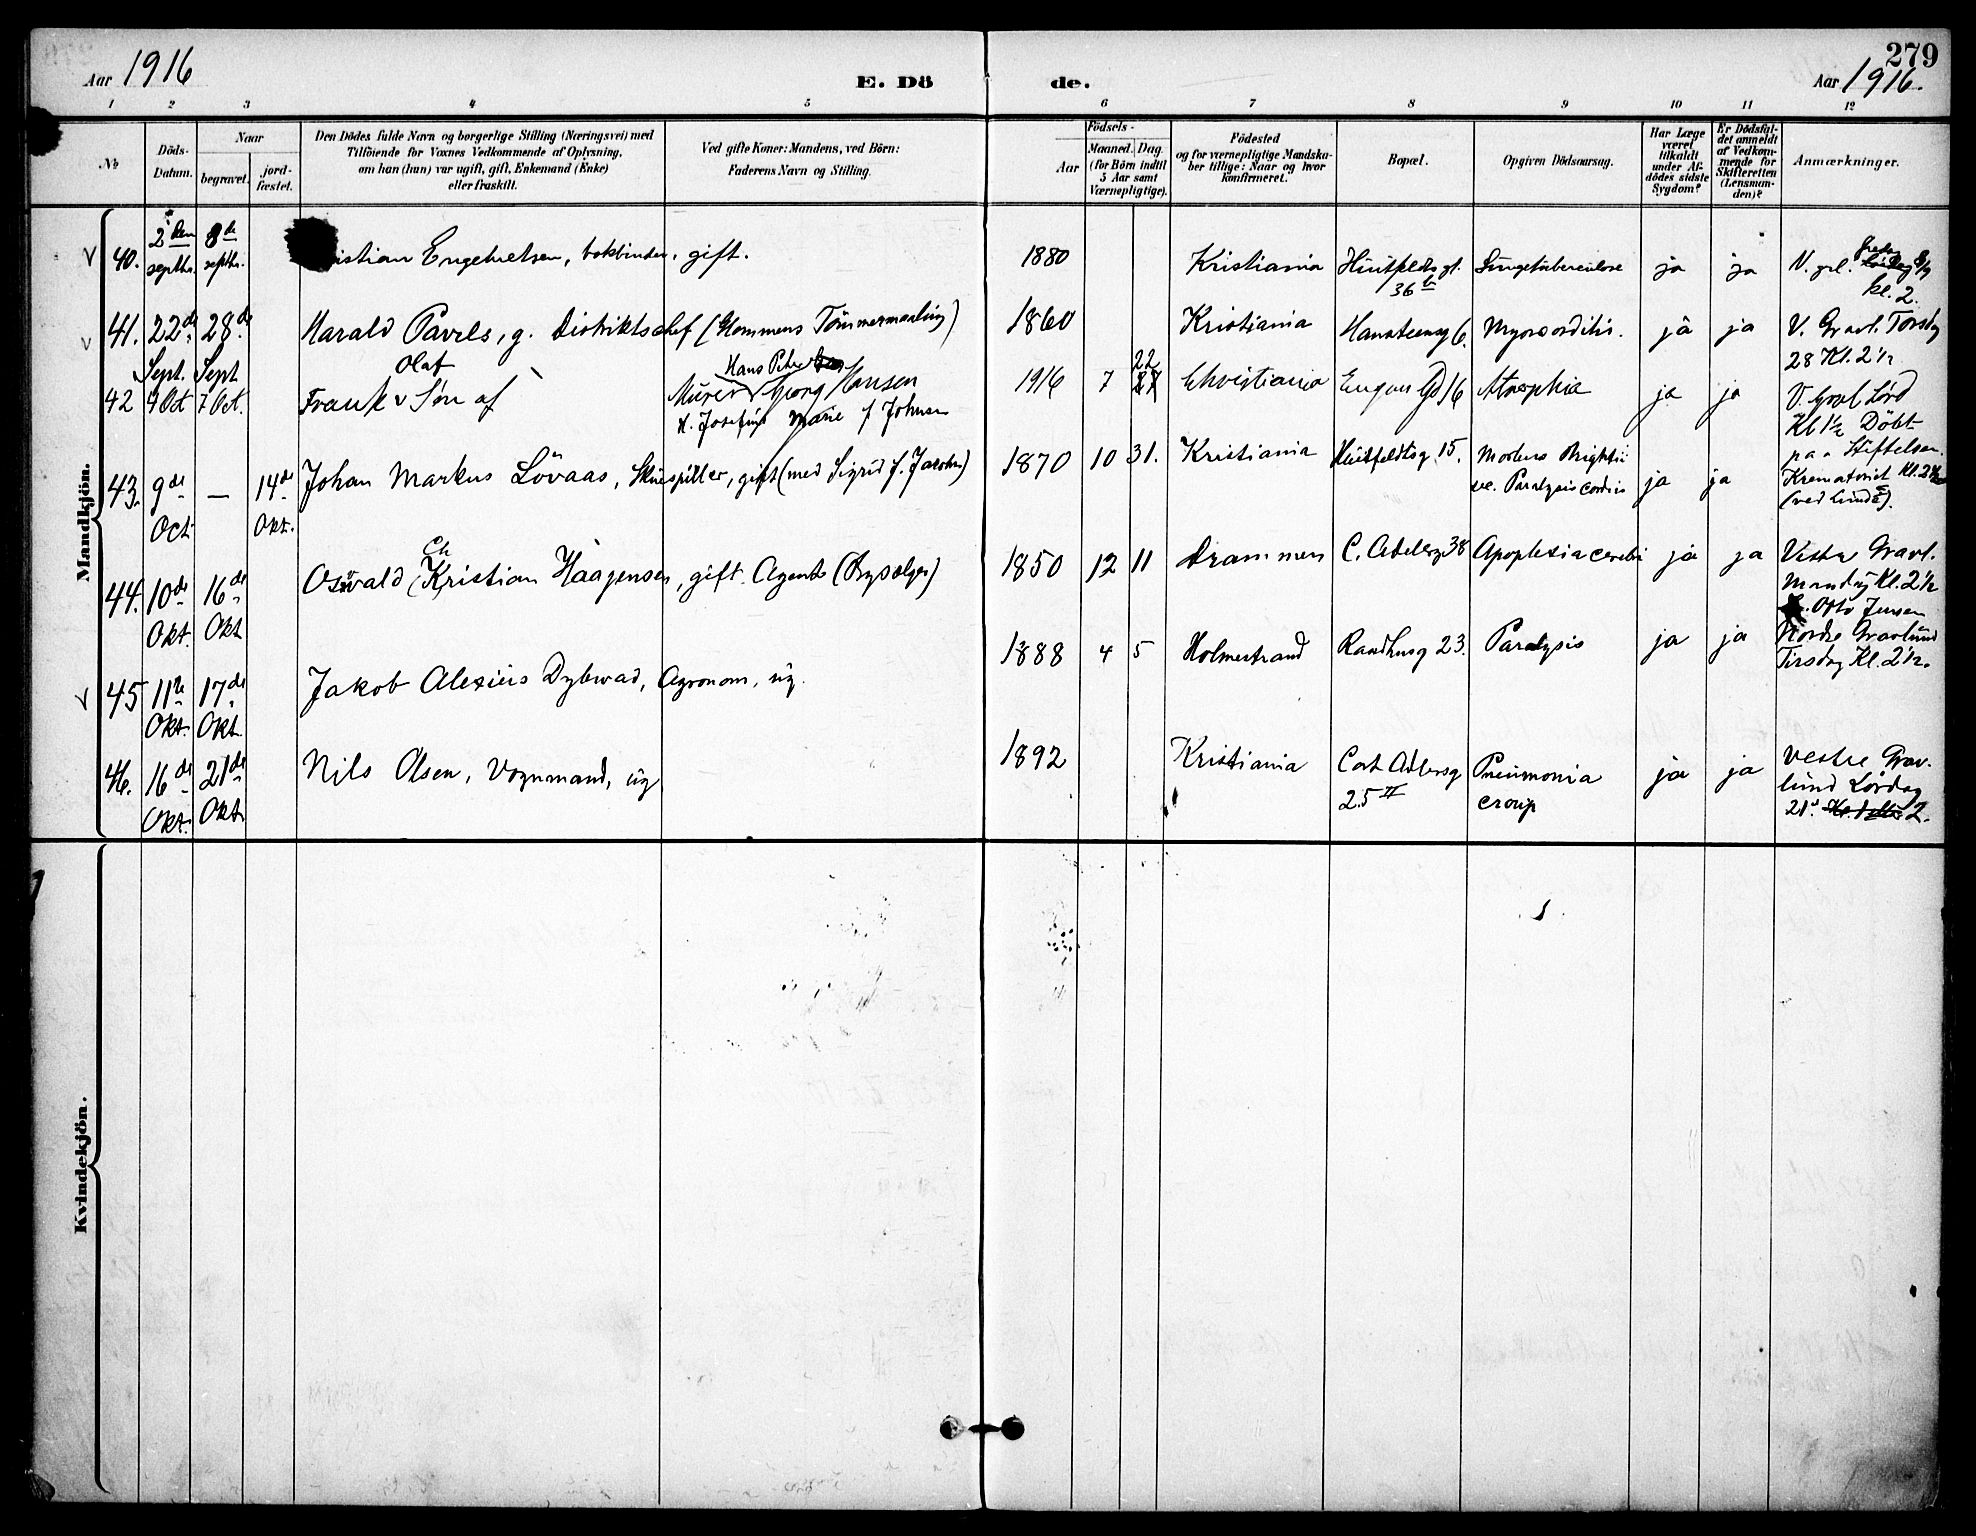 279
Aar 1916
E. Dö
de.
Aar 1916.
1 2 3 4 5 6 7 8 9 10 11 12
№
Döds-
Datum.
Naar
begravet.
jord-
fæstet.
Den Dödes fulde Navn og borgerlige Stilling (Næringsvei) med
Tilföiende for Voxnes Vedkommende af Oplysning,
om han (hun) var ugift, gift, Enkemand (Enke)
eller fraskilt.
Ved gifte Koner: Mandens, ved Börn:
Faderens Navn og Stilling.
Födsels-
Aar
Maaned. Dag.
(for Börn indtil
5 Aar samt
Værnepligtige).
Födested
og for værnepligtige Mandska-
ber tillige: Naar og hvor
konfirmeret.
Bopæl.
Opgiven Dödsaarsag.
Har Læge
været
tilkaldt
under Af-
dödes sidste
Sygdom?
Er Dödsfal-
det anmeldt
af Vedkom-
mende for
Skifteretten
(Lensman-
den)?
Anmærkninger.
Mandkjön.
40. 2den septbr. 8de septbr. istian Engebretsen, bokbinder, gift. 1880 Kristiania Huitfeldts gt. 36 b Lungetuberculose ja ja V. grl. fredag 8/9 kl. 2.
41. 22de Sept. 28de Sept Harald Pavels, g. Distriktschef (Glommens Tömmermaaling) 1860 Kristiania Hansteensg 6. Myocorditis. ja ja V. Gravl. Torsdag
28 Kl. 2 1/2
42 4 Oct 7 Oct. Frank Olaf Søn af Murer Hans Petter Georg Hansen
H. Josefine Marie f Johnsen
1916 7 22 Christiania Eugens Gd 16 Atrophia ja ja V. Gravl Lørd
Kl 1 1/2 Döbt
paa Stiftelsen.
43. 9de Oct — 14de Okt. Johan Markus Lövaas, Skuespiller, gift (med Sigrid f. Jacobsen) 1870 10 31. Kristiania Huitfeldtsg 15. Morbus Brightii
sec. Paralysis cordis ja ja Krematoriet Kl. 2 1/2
(ved Lunde).
44. 10de Okt. 16de Okt Oswald Ch Kristian Haagensen, gift. Agent (Bysælger) 1850 12 11 Drammen C. Adelersg 38 Apoplexia cerebri ja ja Vestre Gravl.
Mandag Kl. 2 1/2
Otto Jensen
45 11te Okt. 17de Okt. Jakob Alexius Dybwad, Agronom, ug. 1888 4 5 Holmestrand Raadhusg 23. Paralysis ja ja Nordre Gravlund
Tirsdag Kl. 2 1/2.
46. 16de Okt. 21de Okt Nils Olsen, Vognmand, ug 1892 Kristiania Cort Adlersg
25 II Pneumonia
croup ja ja Vestre Grav-
lund Lördag
21d Kl. 2.
Kvindekjön.